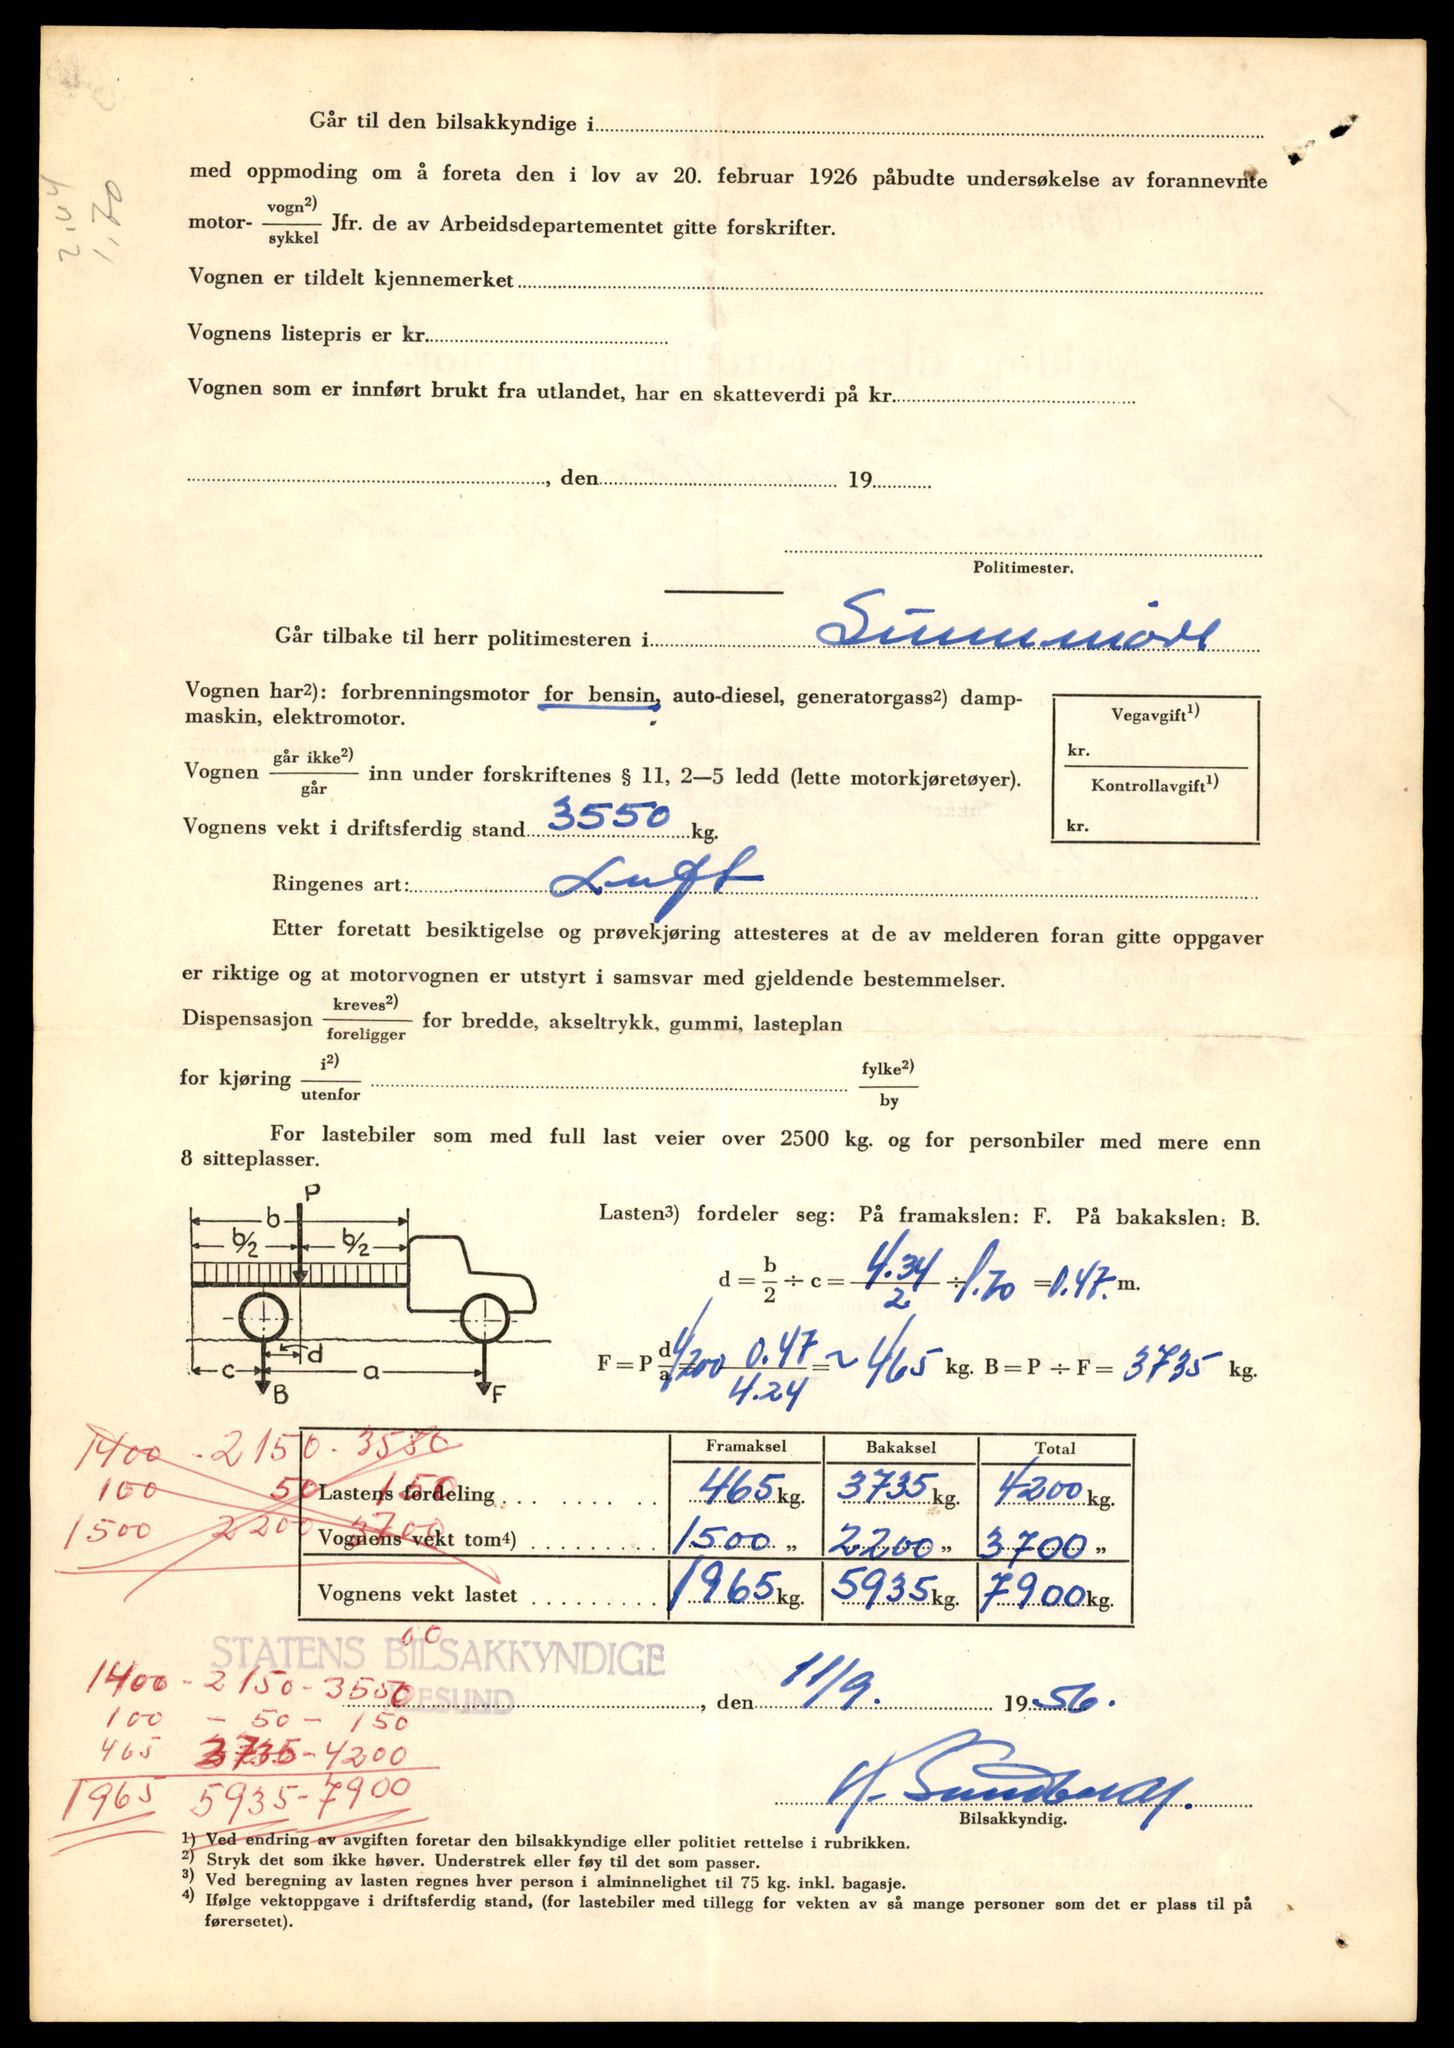 2.44
1.70
Går til den bilsakkyndige i
med oppmoding om å foreta den i lov av 20. februar 1926 påbudte undersøkelse av forannevnte
motor- vogn2)/sykkel Jfr. de av Arbeidsdepartementet gitte forskrifter.
Vognen er tildelt kjennemerket
Vognens listepris er kr.
Vognen som er innført brukt fra utlandet, har en skatteverdi på kr.
, den 19
Politimester.
Går tilbake til herr politimesteren i Sunnmøre
Vognen har2): forbrenningsmotor for bensin, auto-diesel, generatorgass2) damp-
maskin, elektromotor.
Vegavgift1)
kr.
Kontrollavgift1)
kr.
Vognen går ikke2)/går inn under forskriftenes § 11, 2—5 ledd (lette motorkjøretøyer).
Vognens vekt i driftsferdig stand 3550 kg.
Ringenes art: Luft
Etter foretatt besiktigelse og prøvekjøring attesteres at de av melderen foran gitte oppgaver
er riktige og at motorvognen er utstyrt i samsvar med gjeldende bestemmelser.
Dispensasjon kreves2)/foreligger for bredde, akseltrykk, gummi, lasteplan
for kjøring i2)/utenfor fylke2)/by
For lastebiler som med full last veier over 2500 kg. og for personbiler med mere enn
8 sitteplasser.
P
b
b/2 b/2
c d a
B F
Lasten3) fordeler seg: På framakslen: F. På bakakslen: B.
d = b/2 ÷ c = 4.34/2 ÷ 1.70 = 0.47. m.
F = P d/a = 4200 0.47/4.24 = ~ 465 kg. B = P ÷ F = 3735 kg.
1400 - 2150 - 3550
100 50 150
1500 2200 3700
Framaksel Bakaksel Total
Lastens fordeling 465 kg. 3735 kg. 4200 kg.
Vognens vekt tom4) 1500 „ 2200 „ 3700 „
Vognens vekt lastet 1965 kg. 5935 kg. 7900 kg.
STATENS BILSAKKYNDIGE
ÅLESUND
, den 11/9. 1956.
1400 - 2150 - 3550
100 - 50 - 150
465 3735 - 4200
1965 5935 - 7900
Bilsakkyndig.
1) Ved endring av avgiften foretar den bilsakkyndige eller politiet rettelse i rubrikken.
2) Stryk det som ikke høver. Understrek eller føy til det som passer.
3) Ved beregning av lasten regnes hver person i alminnelighet til 75 kg. inkl. bagasje.
4) Ifølge vektoppgave i driftsferdig stand, (for lastebiler med tillegg for vekten av så mange personer som det er plass til på
førersetet).